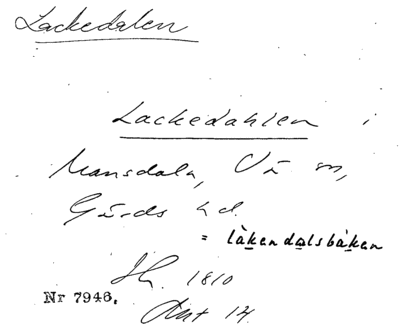 Lackedalen
Lackedahlen i
Mansdala, Vä sn,
Gärds hd.
= låkendalsbåken
Sk. 1810
Nr 7946. Akt 14.